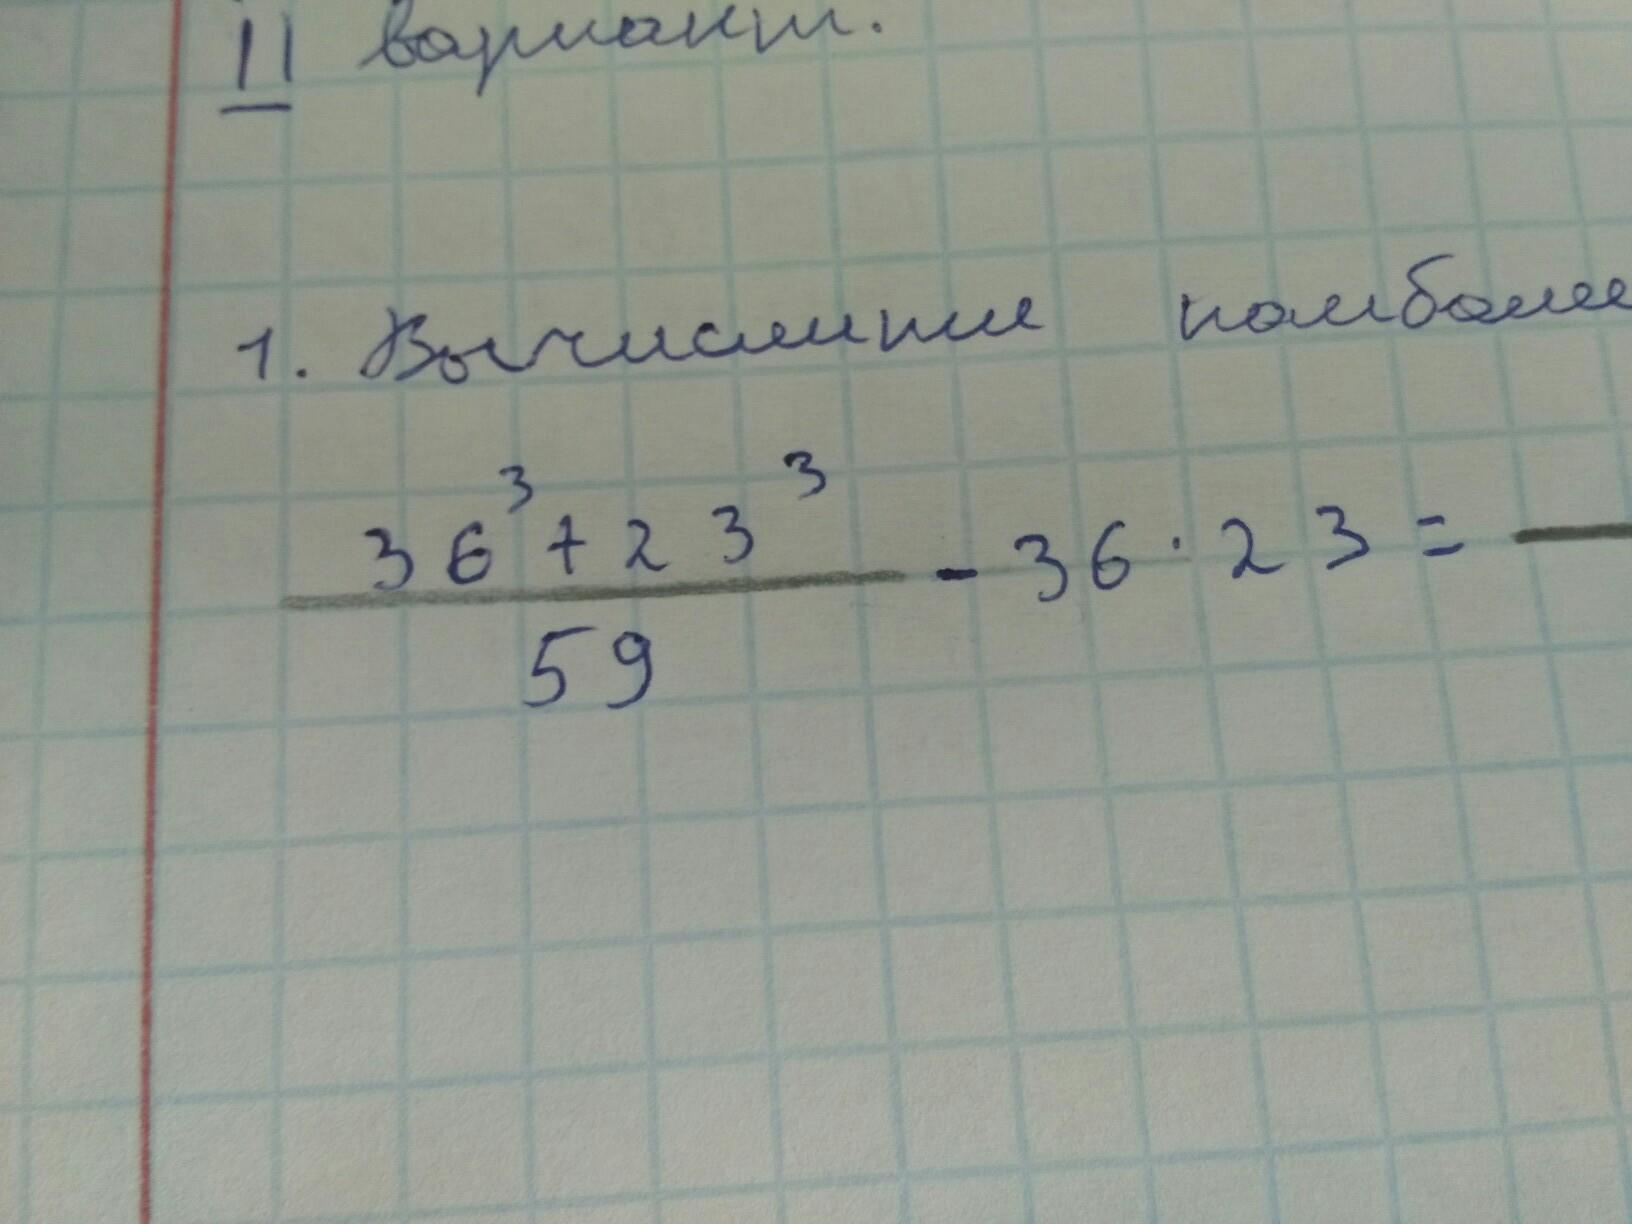 II вариант.
1. Вычислите наиболее
36³ + 23³
—————— - 36 · 23 = —
59